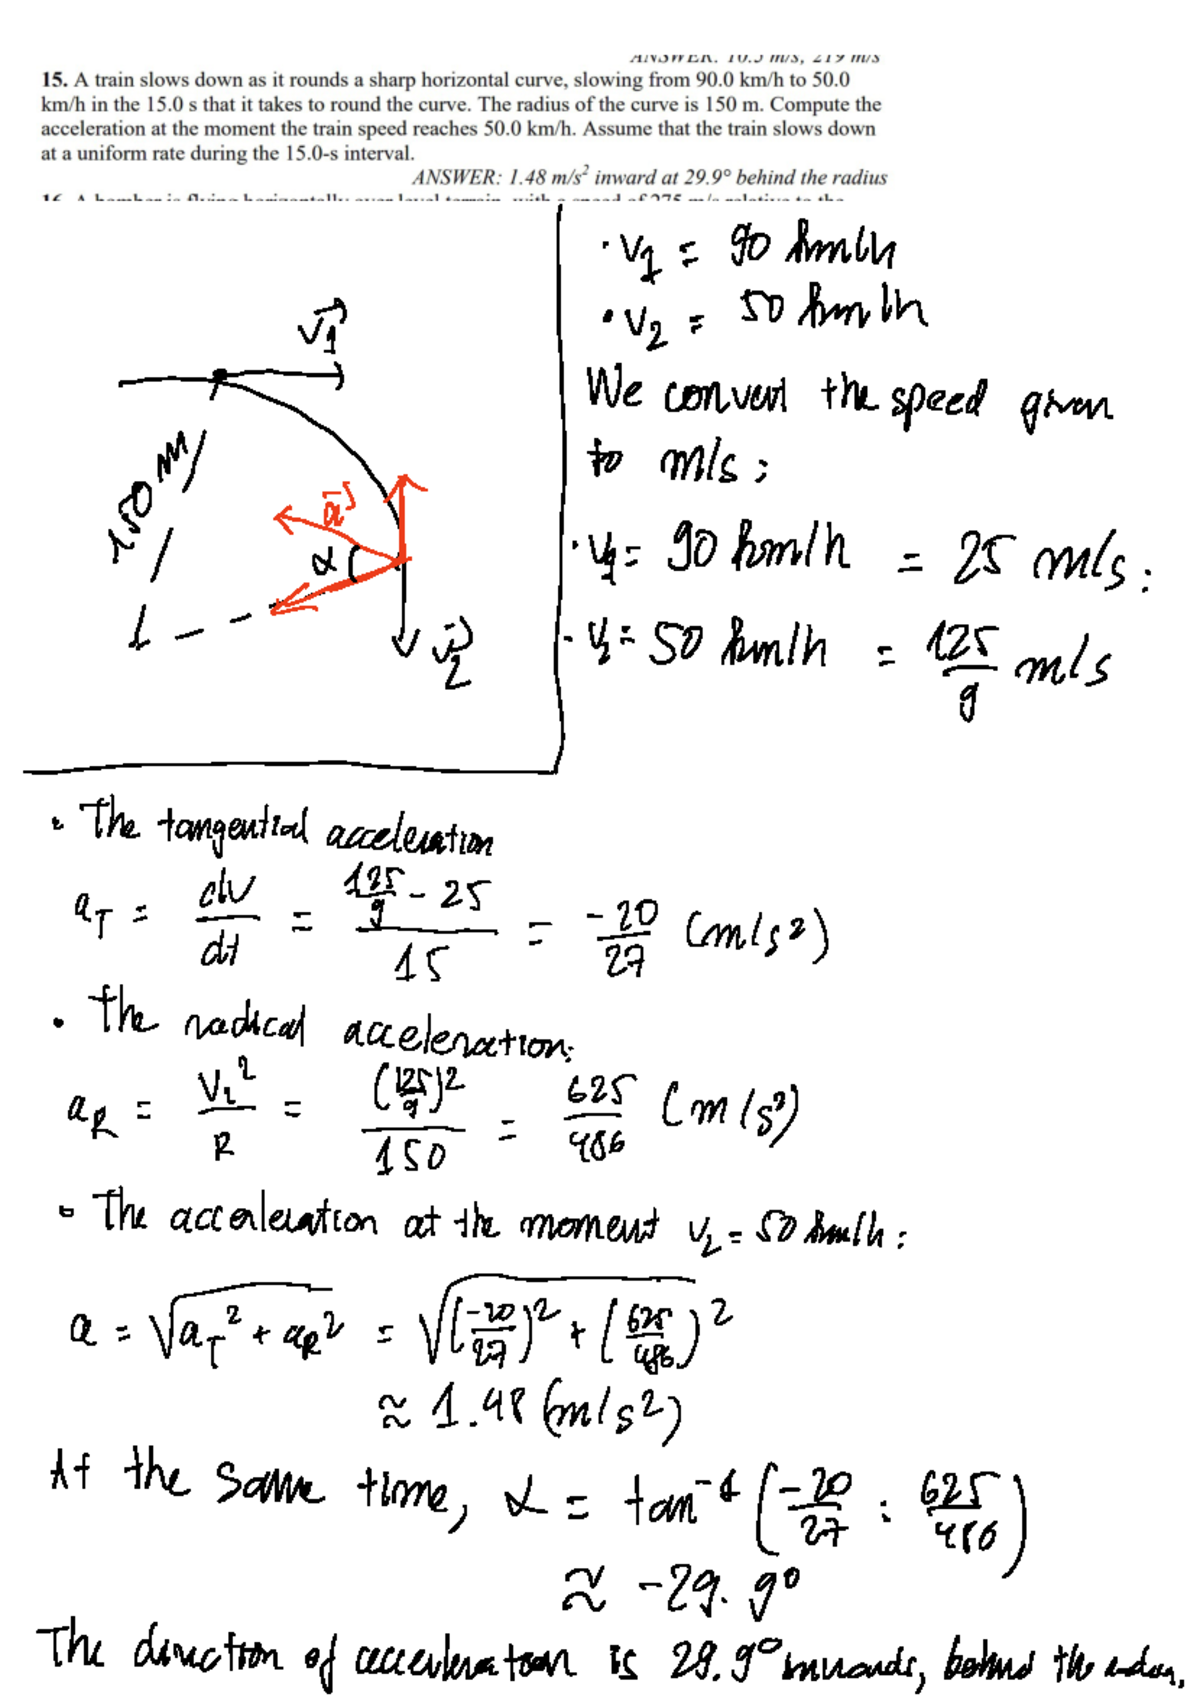 15. A train slows down as it rounds a sharp horizontal curve, slowing from 90.0 km/h to 50.0
km/h in the 15.0 s that it takes to round the curve. The radius of the curve is 150 m. Compute the
acceleration at the moment the train speed reaches 50.0 km/h. Assume that the train slows down
at a uniform rate during the 15.0-s interval.
ANSWER: 1.48 m/s² inward at 29.9° behind the radius
· v₁ = 90 km/h
· v₂ = 50 km/h
We convert the speed given
to m/s:
· v₁ = 90 km/h = 25 m/s.
· v₂ = 50 km/h = 125/9 m/s
v₁
150 M
a
α
v₂
· The tangential acceleration
a_T = dv/dt = (125/9 - 25)/15 = -20/27 (m/s²)
· The radical acceleration:
a_R = v₂²/R = (125/9)²/150 = 625/486 (m/s²)
· The acceleration at the moment v₂ = 50 km/h:
a = √(a_T² + a_R²) = √((-20/27)² + (625/486)²)
≈ 1.48 (m/s²)
At the same time, α = tan⁻¹ (-20/27 : 625/486)
≈ -29.9°
The direction of acceleration is 29.9° inwards, behind the